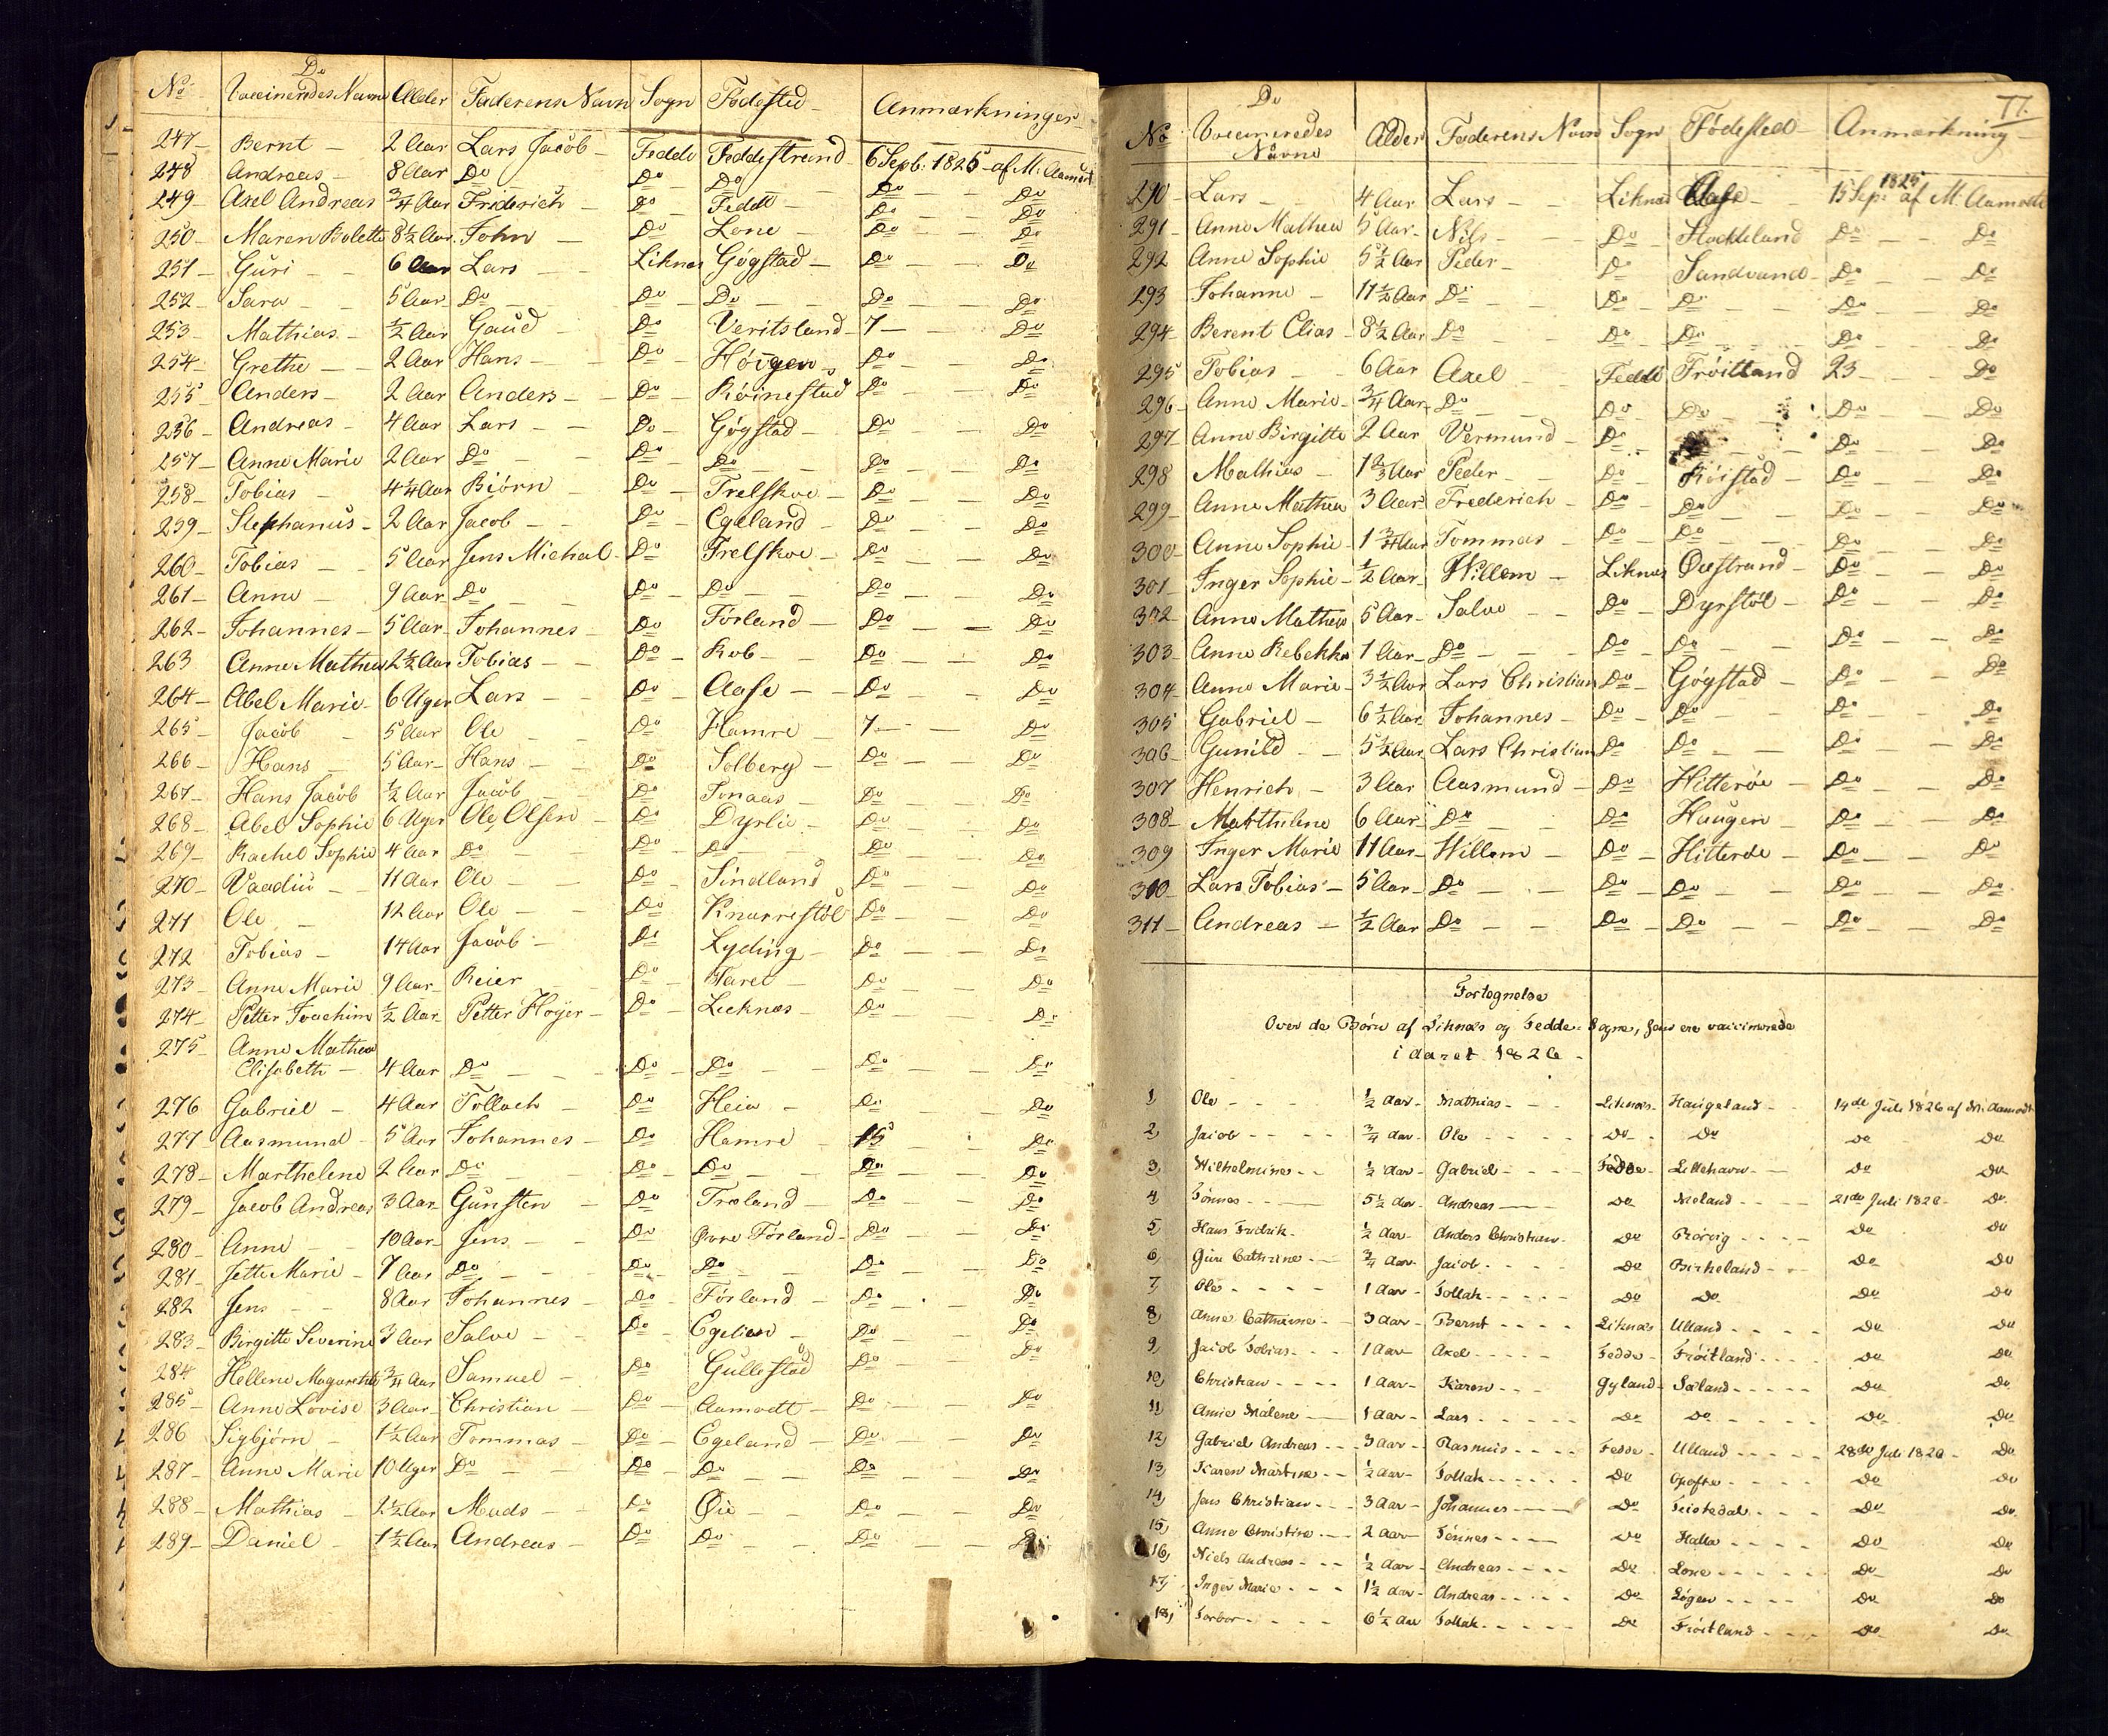 Do
No Vaccineredes Navne Alder Faderens Navn Sogn Fødested Anmærkninger
247 Bernt 2 Aar Lars Jacob Fedde Feddestrand 6 Sept. 1825 af M. Aamodt
248 Andreas 8 Aar Do Do Do Do Do
249 Axel Andreas 3/4 Aar Friderich Do Fedde Do Do
250 Maren Bolette 8 1/2 Aar John Do Lone Do Do
251 Guri 6 Aar Lars Liknes Gøgstad Do Do
252 Sara 5 Aar Do Do Do Do Do
253 Mathias 1/2 Aar Gaud Do Veritsland 7 Do
254 Grethe 2 Aar Hans Do Høigen Do Do
255 Anders 2 Aar Anders Do Røinestad Do Do
256 Andreas 4 Aar Lars Do Gøgstad Do Do
257 Anne Marie 2 Aar Do Do Do Do Do
258 Tobias 4 1/4 Aar Biørn Do Trelskoe Do Do
259 Stephanus 2 Aar Jacob Do Egeland Do Do
260 Tobias 5 Aar Jens Michal Do Trelskoe Do Do
261 Anne 9 Aar Do Do Do Do Do
262 Johannes 5 Aar Johannes Do Førland Do Do
263 Anne Mathea 2 1/2 Aar Tobias Do Rob Do Do
264 Abel Marie 6 Uger Lars Do Aase Do Do
265 Jacob 5 Aar Ole Do Hamre 7 Do
266 Hans 5 Aar Hans Do Solberg Do Do
267 Hans Jacob 1/2 Aar Jacob Do Sonaas Do Do
268 Abel Sophie 6 Uger Ole Olsen Do Dyrlie Do Do
269 Rachel Sophie 4 Aar Do Do Do Do Do
270 11 Aar Ole Do Sindland Do Do
271 Ole 12 Aar Ole Do Knarrestøl Do Do
272 Tobias 14 Aar Jacob Do Lyding Do Do
273 Anne Marie 9 Aar Reier Do Do Do
274 Petter Joachim 1/2 Aar Petter Høyer Do Lecknes Do Do
275 Anne Mathea
Elisabeth 4 Aar Do Do Do Do Do
276 Gabriel 4 Aar Tollach Do Heia Do Do
277 Aasmund 5 Aar Johannes Do Hamre 15 Do
278 Marthelene 2 Aar Do Do Do Do Do
279 Jacob Andreas 3 Aar Gunsten Do Træland Do Do
280 Anne 10 Aar Jens Do Øvre Førland Do Do
281 Jette Marie 7 Aar Do Do Do Do Do
282 Jens 8 Aar Johannes Do Førland Do Do
283 Birgitte Severine 3 Aar Salve Do Do Do
284 Hellene Magarethe 3/4 Aar Samuel Do Gullestad Do Do
285 Anne Lovise 3 Aar Christian Do Aamodt Do Do
286 Sigbjørn 1 1/2 Aar Tommas Do Egeland Do Do
287 Anne Marie 10 Uger Do Do Do Do Do
288 Mathias 2 1/2 Aar Mads Do Øie Do Do
289 Daniel 1 1/2 Aar Andreas Do Do Do Do
77.
Do
No Vaccineredes Navne Alder Faderens Navn Sogn Fødested Anmærkning
290 Lars 4 Aar Lars Liknes Aase 15 Sep. 1825 af M. Aamodt
291 Anne Mathea 5 Aar Nils Do Stokkeland Do Do
292 Anne Sophie 5 1/2 Aar Peder Do Sandvand Do Do
293 Johanne 11 1/2 Aar Do Do Do Do Do
294 Berent Elias 8 1/2 Aar Do Do Do Do Do
295 Tobias 6 Aar Axel Fedde Frøitland 23 Do
296 Anne Marie 3/4 Aar Do Do Do Do Do
297 Anne Birgitte 2 Aar Vermund Do Do Do
298 Mathias 1 2/3 Aar Peder Do Røistad Do Do
299 Anne Mathea 3 Aar Frederich Do Do Do Do
300 Anne Sophie 1 3/4 Aar Tommas Do Do Do Do
301 Inger Sophie 1/2 Aar Willem Liknes Øiestrand Do Do
302 Anne Mathea 5 Aar Salve Do Dyrstøl Do Do
303 Anne Rebekka 1 Aar Do Do Do Do Do
304 Anne Marie 3 1/2 Aar Lars Christian Do Gøgstad Do Do
305 Gabriel 6 1/2 Aar Johannes Do Do Do Do
306 Gunild 5 1/2 Aar Lars Christian Do Do Do Do
307 Henrich 3 Aar Aasmund Do Hitterøe Do Do
308 Marthelene 6 Aar Do Do Haugen Do Do
309 Inger Marie 11 Aar Willem Do Hitterøe Do Do
310 Lars Tobias 5 Aar Do Do Do Do Do
311 Andreas 1/2 Aar Do Do Do Do Do
Fortegnelse
Over de Børn af Liknæs og Fedde Sogne, som ere vaccinerede
i Aaret 1826
1 Ole 1/2 Aar Mathias Liknæs Haugeland 14de Juli 1826 af M. Aamodt
2, Jacob 3/4 Aar Ole Do Do Do Do
3, Wilhelmine 1/2 Aar Gabriel Fedde Lillehavn Do Do
4, Tønnes 5 1/2 Aar Andreas Do Meland 21de Juli 1826 Do
5, Hans Fredrik 1/2 Aar Anders Christian Do Rørvig Do Do
6, Guri Cathrine 3/4 Aar Jacob Do Birkeland Do Do
7, Ole 1 Aar Tollak Do Do Do Do
8, Anne Cathrine 3 Aar Bernt Liknæs Ulland Do Do
9, Jacob Tobias 1 Aar Axel Fedde Frøitland Do Do
10, Christian 1 Aar Karen Gyland Sæland Do Do
11, Anne Malene 1 Aar Lars Do Do Do Do
12, Gabriel Andreas 3 Aar Rasmus Fedde Ulland 28de Juli 1826 Do
13, Karen Martine 1/2 Aar Tollak Do Opofte Do Do
14, Jens Christian 3 Aar Johannes Do Feistedal Do Do
15, Anne Christine 2 Aar Tønnes Do Halla Do Do
16, Niels Andreas 1/2 Aar Andreas Do Lone Do Do
17, Inger Marie 1 1/2 Aar Andreas Do Løgen Do Do
18, Torbor 6 1/2 Aar Tollak Do Frøitland Do Do